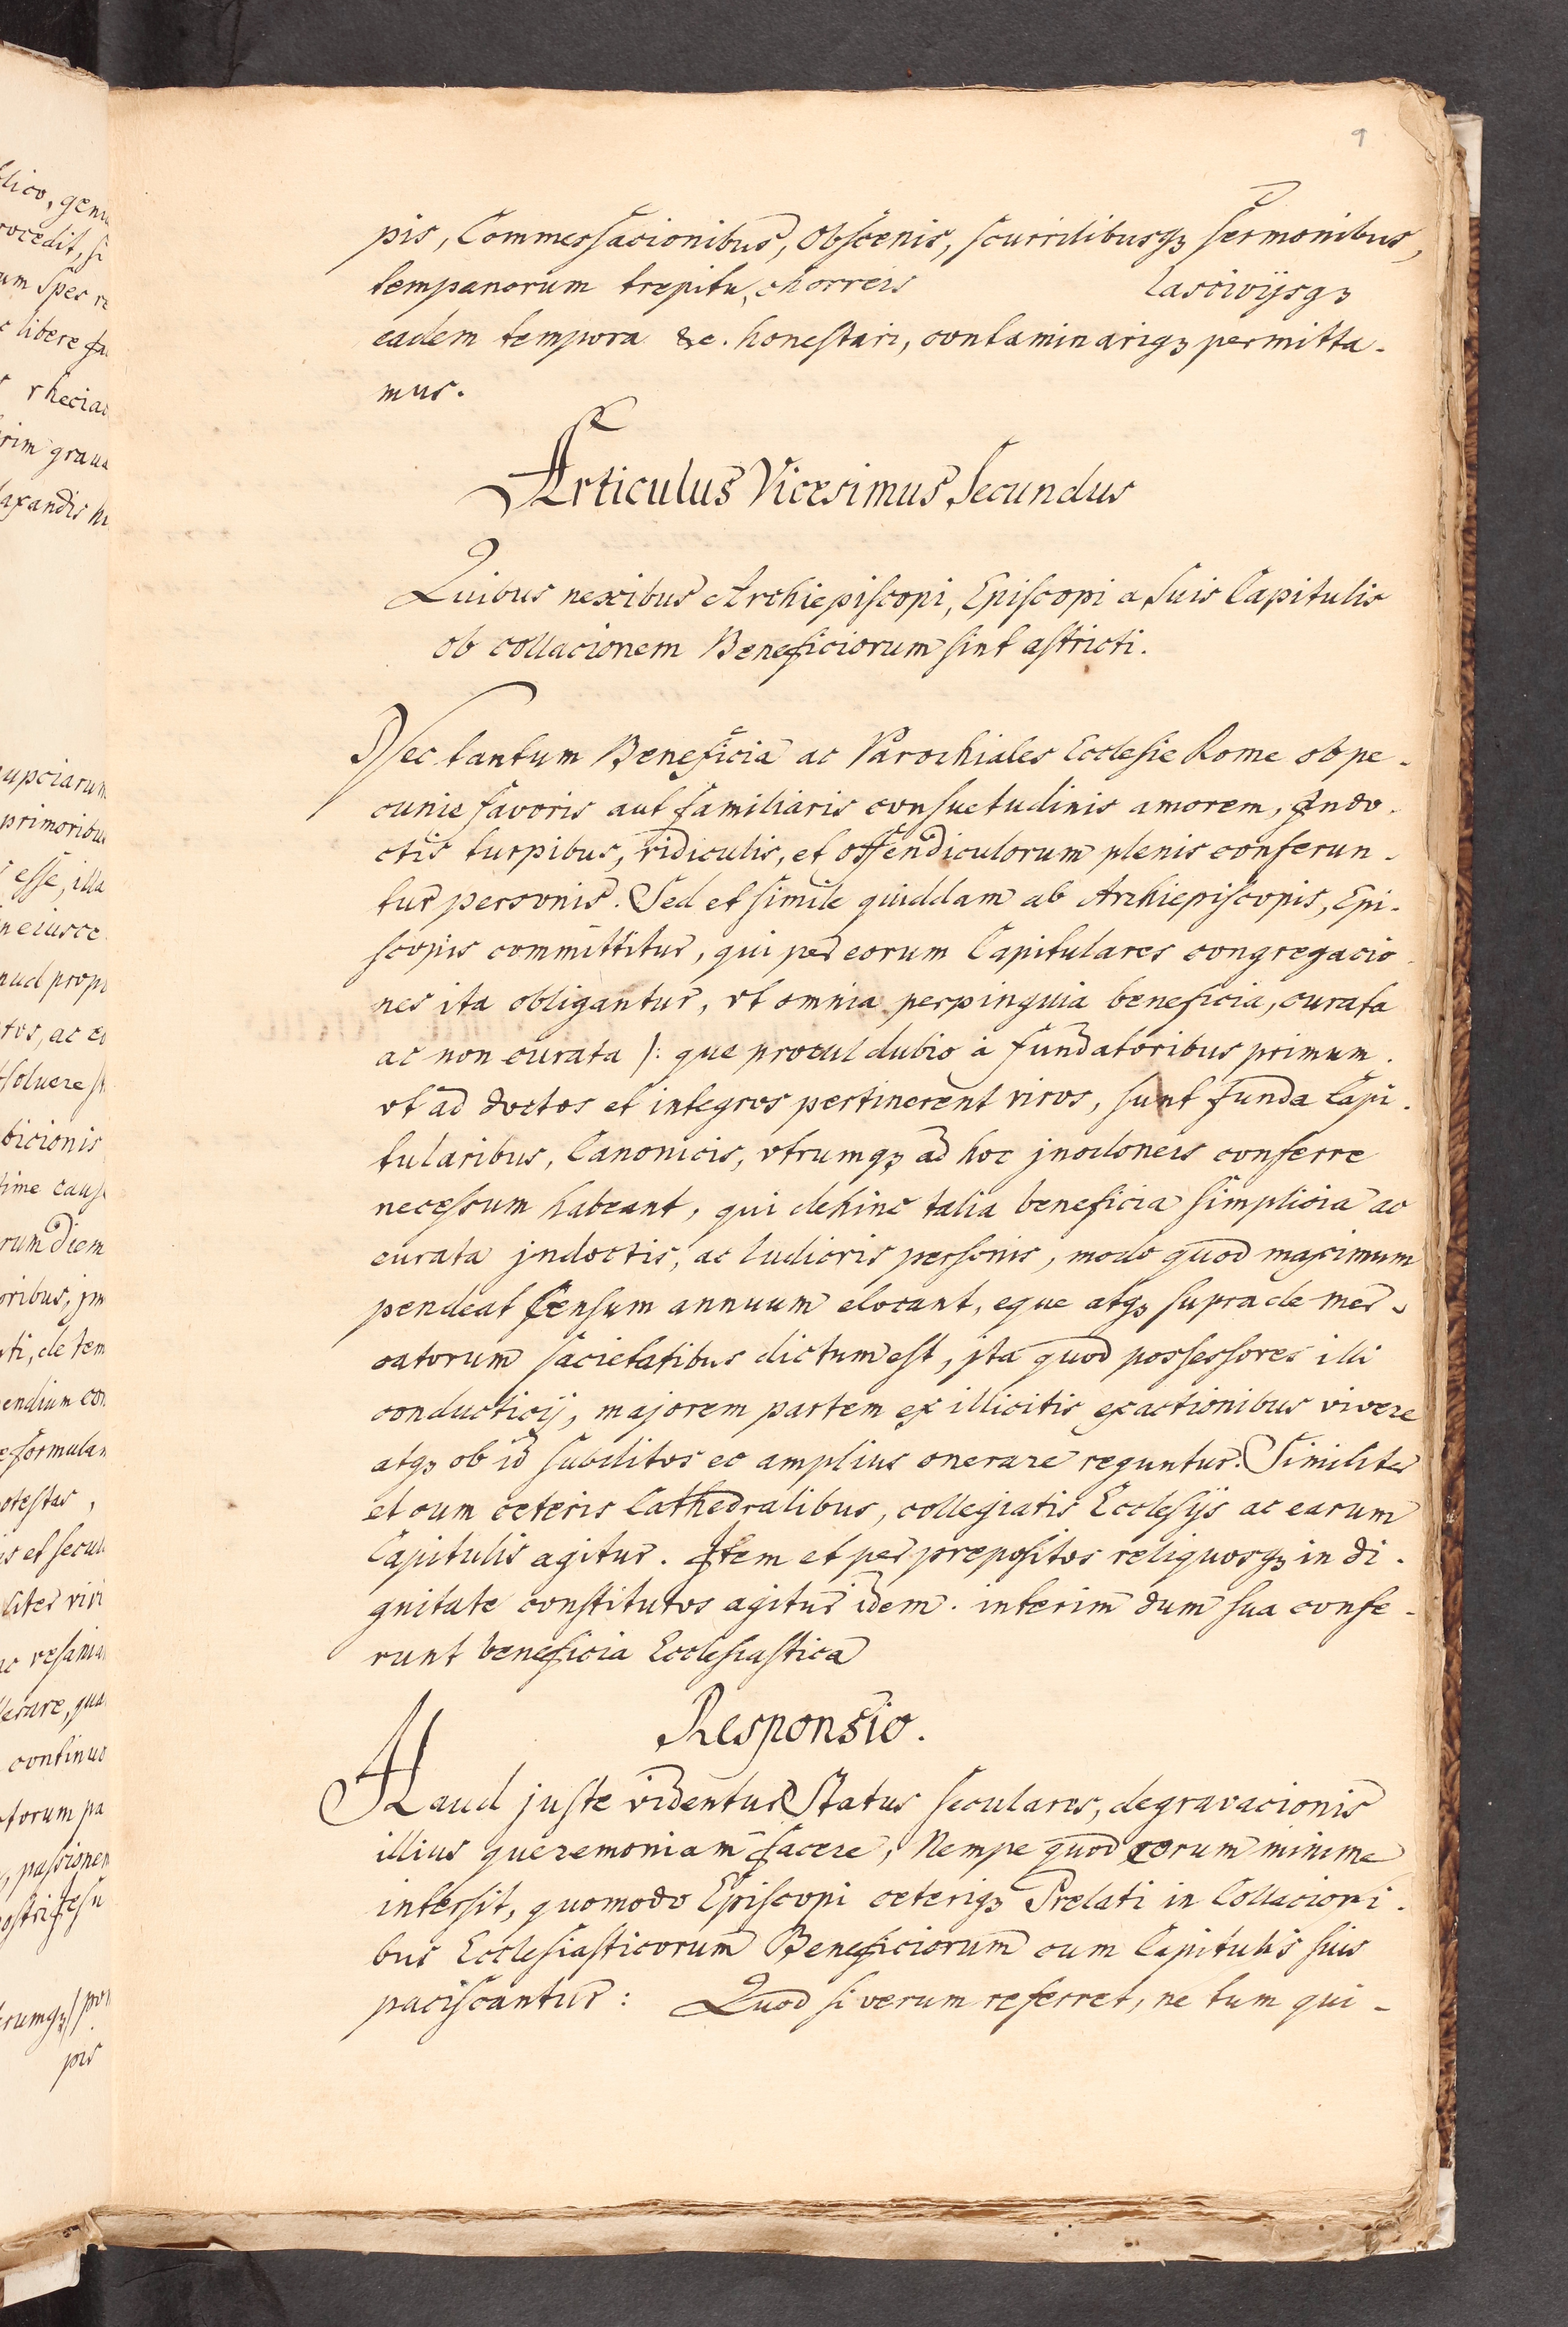 9
pis, Commessacionibus, Obscenis, scurrilibusqꝫ sermonibus,
tempanorum trepitu, chorreis lascivijsqꝫ
eadem tempora &c. honestari, contaminariqꝫ permitta-
mus.
Articulus Vicesimus Secundus
Quibus nexibus Archiepiscopi, Episcopi a suis Capitulis
ob collacionem Beneficiorum sint astricti.
Nec tantum Beneficia ac Parochiales Ecclesie Rome ob pe-
cunie favoris aut familiaris consuetudinis amorem, Indo-
ctis turpibus, ridiculis, et offendiculorum plenis conferun-
tur personis. Sed et simile quiddam ab Archiepiscopis, Epi-
scopis committitur, qui per eorum Capitulares congregacio-
nes ita obligantur, vt omnia perpinguia beneficia, curata
ac non curata /: que procul dubio à fundatoribus primum.
vt ad doctos et integros pertinerent viros, sunt funda Capi-
tularibus, Canonicis, vtrumqꝫ ad hoc jnodoneis conferre
necessum habeant, qui dehinc talia beneficia simplicia ac
curata jndoctis, ac ludicris personis, modo quod maximum
pendeat Censum annuum elocant, eque atqꝫ supra de mer-
catorum sacietatibus dictum est, jta quod possessores illi
conducticij, majorem partem ex illicitis exactionibus vivere
atqꝫ ob id subditos eo amplius onerare reguntur. Similiter
et cum ceteris Cathedralibus, collegiatis Ecclesijs ac earum
Capitulis agitur. Item et per prepositos reliquosqꝫ in di-
gnitate constitutos agitur idem. interim dum sua confe-
runt beneficia Ecclesiastica
Responsio.
Haud juste videntur Status seculares, degravacionis
illius queremoniam facere, Nempe quod eorum minime
intersit, quomodo Episcopi ceteriqꝫ Prelati in Collacioni-
bus Ecclesiasticorum Beneficiorum cum Capitulis suis
paciscantur: Quod si verum referret, ne tum qui-